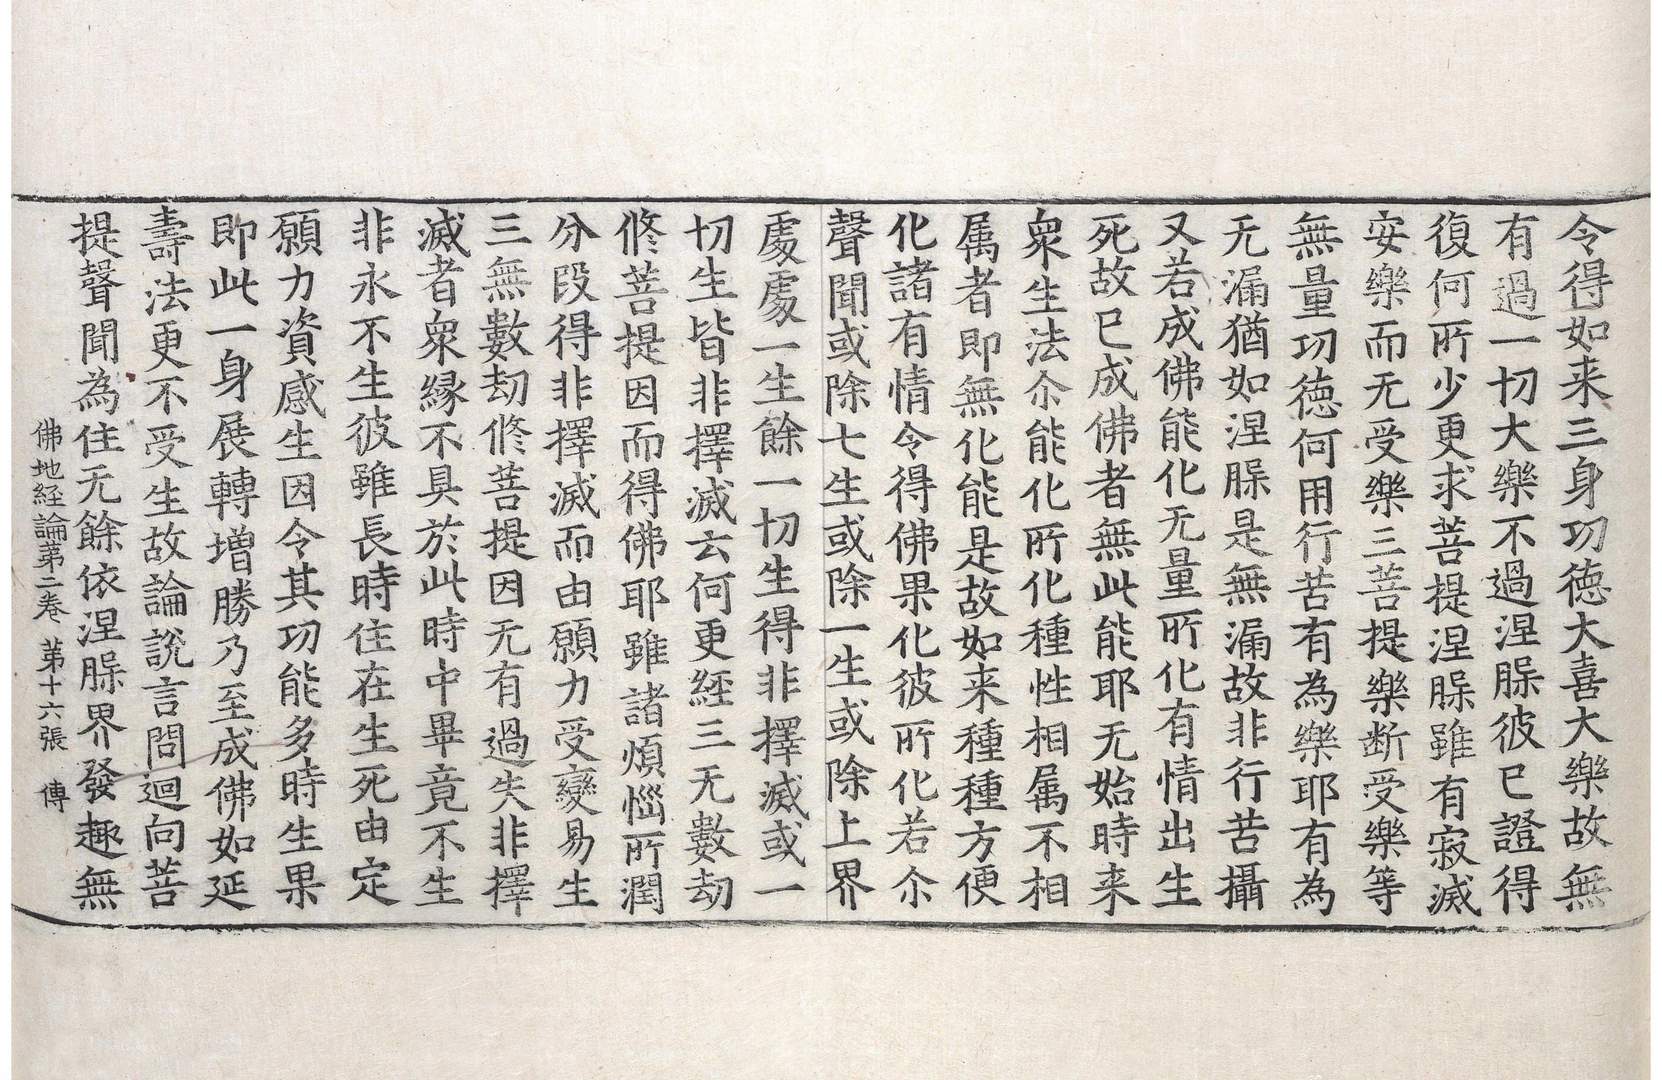 令得如来三身功徳大喜大樂故無
有過一切大樂不過涅𦝫彼已證得
復何所少更求菩提涅𦝫雖有寂滅
安樂而无受樂三菩提樂断受樂等
無量功徳何用行苦有為樂耶有為
无漏猶如涅𦝫是無漏故非行苦攝
又若成佛能化无量所化有情出生
死故已成佛者無此能耶无始時来
衆生法尒能化所化種性相属不相
属者即無化能是故如来種種方便
化諸有情令得佛果化彼所化若尒
聲聞或除七生或除一生或除上界
處處一生餘一切生得非擇滅或一
切生皆非擇滅云何更經三无數劫
修菩提因而得佛耶雖諸煩惱所潤
分段得非擇滅而由願力受變易生
三無數劫修菩提因无有過失非擇
滅者衆縁不具於此時中畢竟不生
非永不生彼雖長時住在生死由定
願力資感生因令其功能多時生果
即此一身展轉増勝乃至成佛如延
壽法更不受生故論說言問迴向菩
提聲聞為住无餘依涅𦝫界發趣無
佛地経論第二卷　第十六張　傳